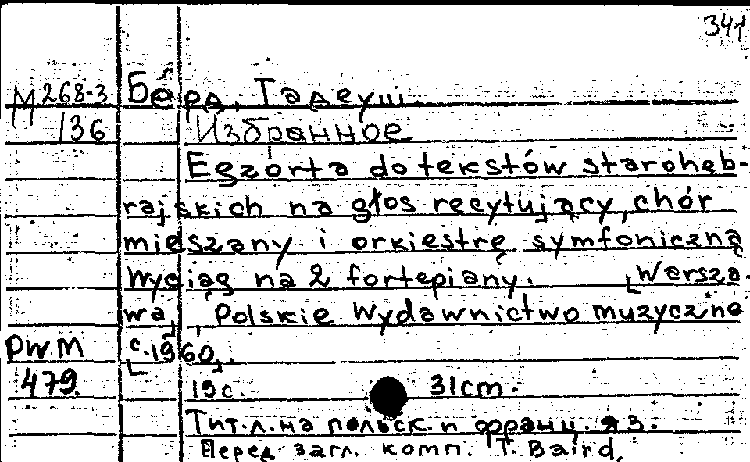 341
М 268-3 Бэрд, Тадеуш.
136 Избранное
Egzorta do tekstów staroheb-
rajskich na głos recytujący, chór
mieszany i orkiestrę symfoniczną
Wyciąg na 2 fortepiany. [Warsza-
wa], Polskie Wydawnictwo muzyczne
PWM [c.1960].
479. 19 c. 31 cm.
Тит. л. на польск. и франц. яз.
Перед загл. комп. T. Baird.